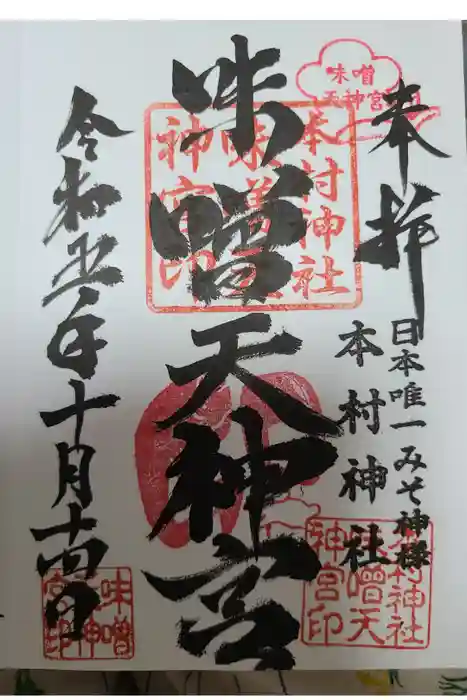 味噌
天神宮
奉拝
日本唯一みそ神様
本村神社
本村神社
味噌天
神宮印
味噌天神宮
本村神社
味噌天
神宮印
令和五年十月十四日
味噌
天神
宮印